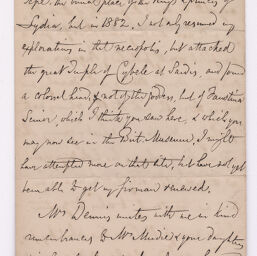 Lydia, but in 1882, I not only resumed my
explorations in that necropolis, but attacked
the great temple of Cybele at Sardis, and found
a colossal head, not of the goddess, but of Faustina
Senior, which I think you saw here, & which you
may now see in the Brit. Museum. I might
have attempted more on that site, but have not yet
been able to get my firman renewed.
Mrs Dennis unites with me in kind
remembrances to Mrs Mudie & your daughters